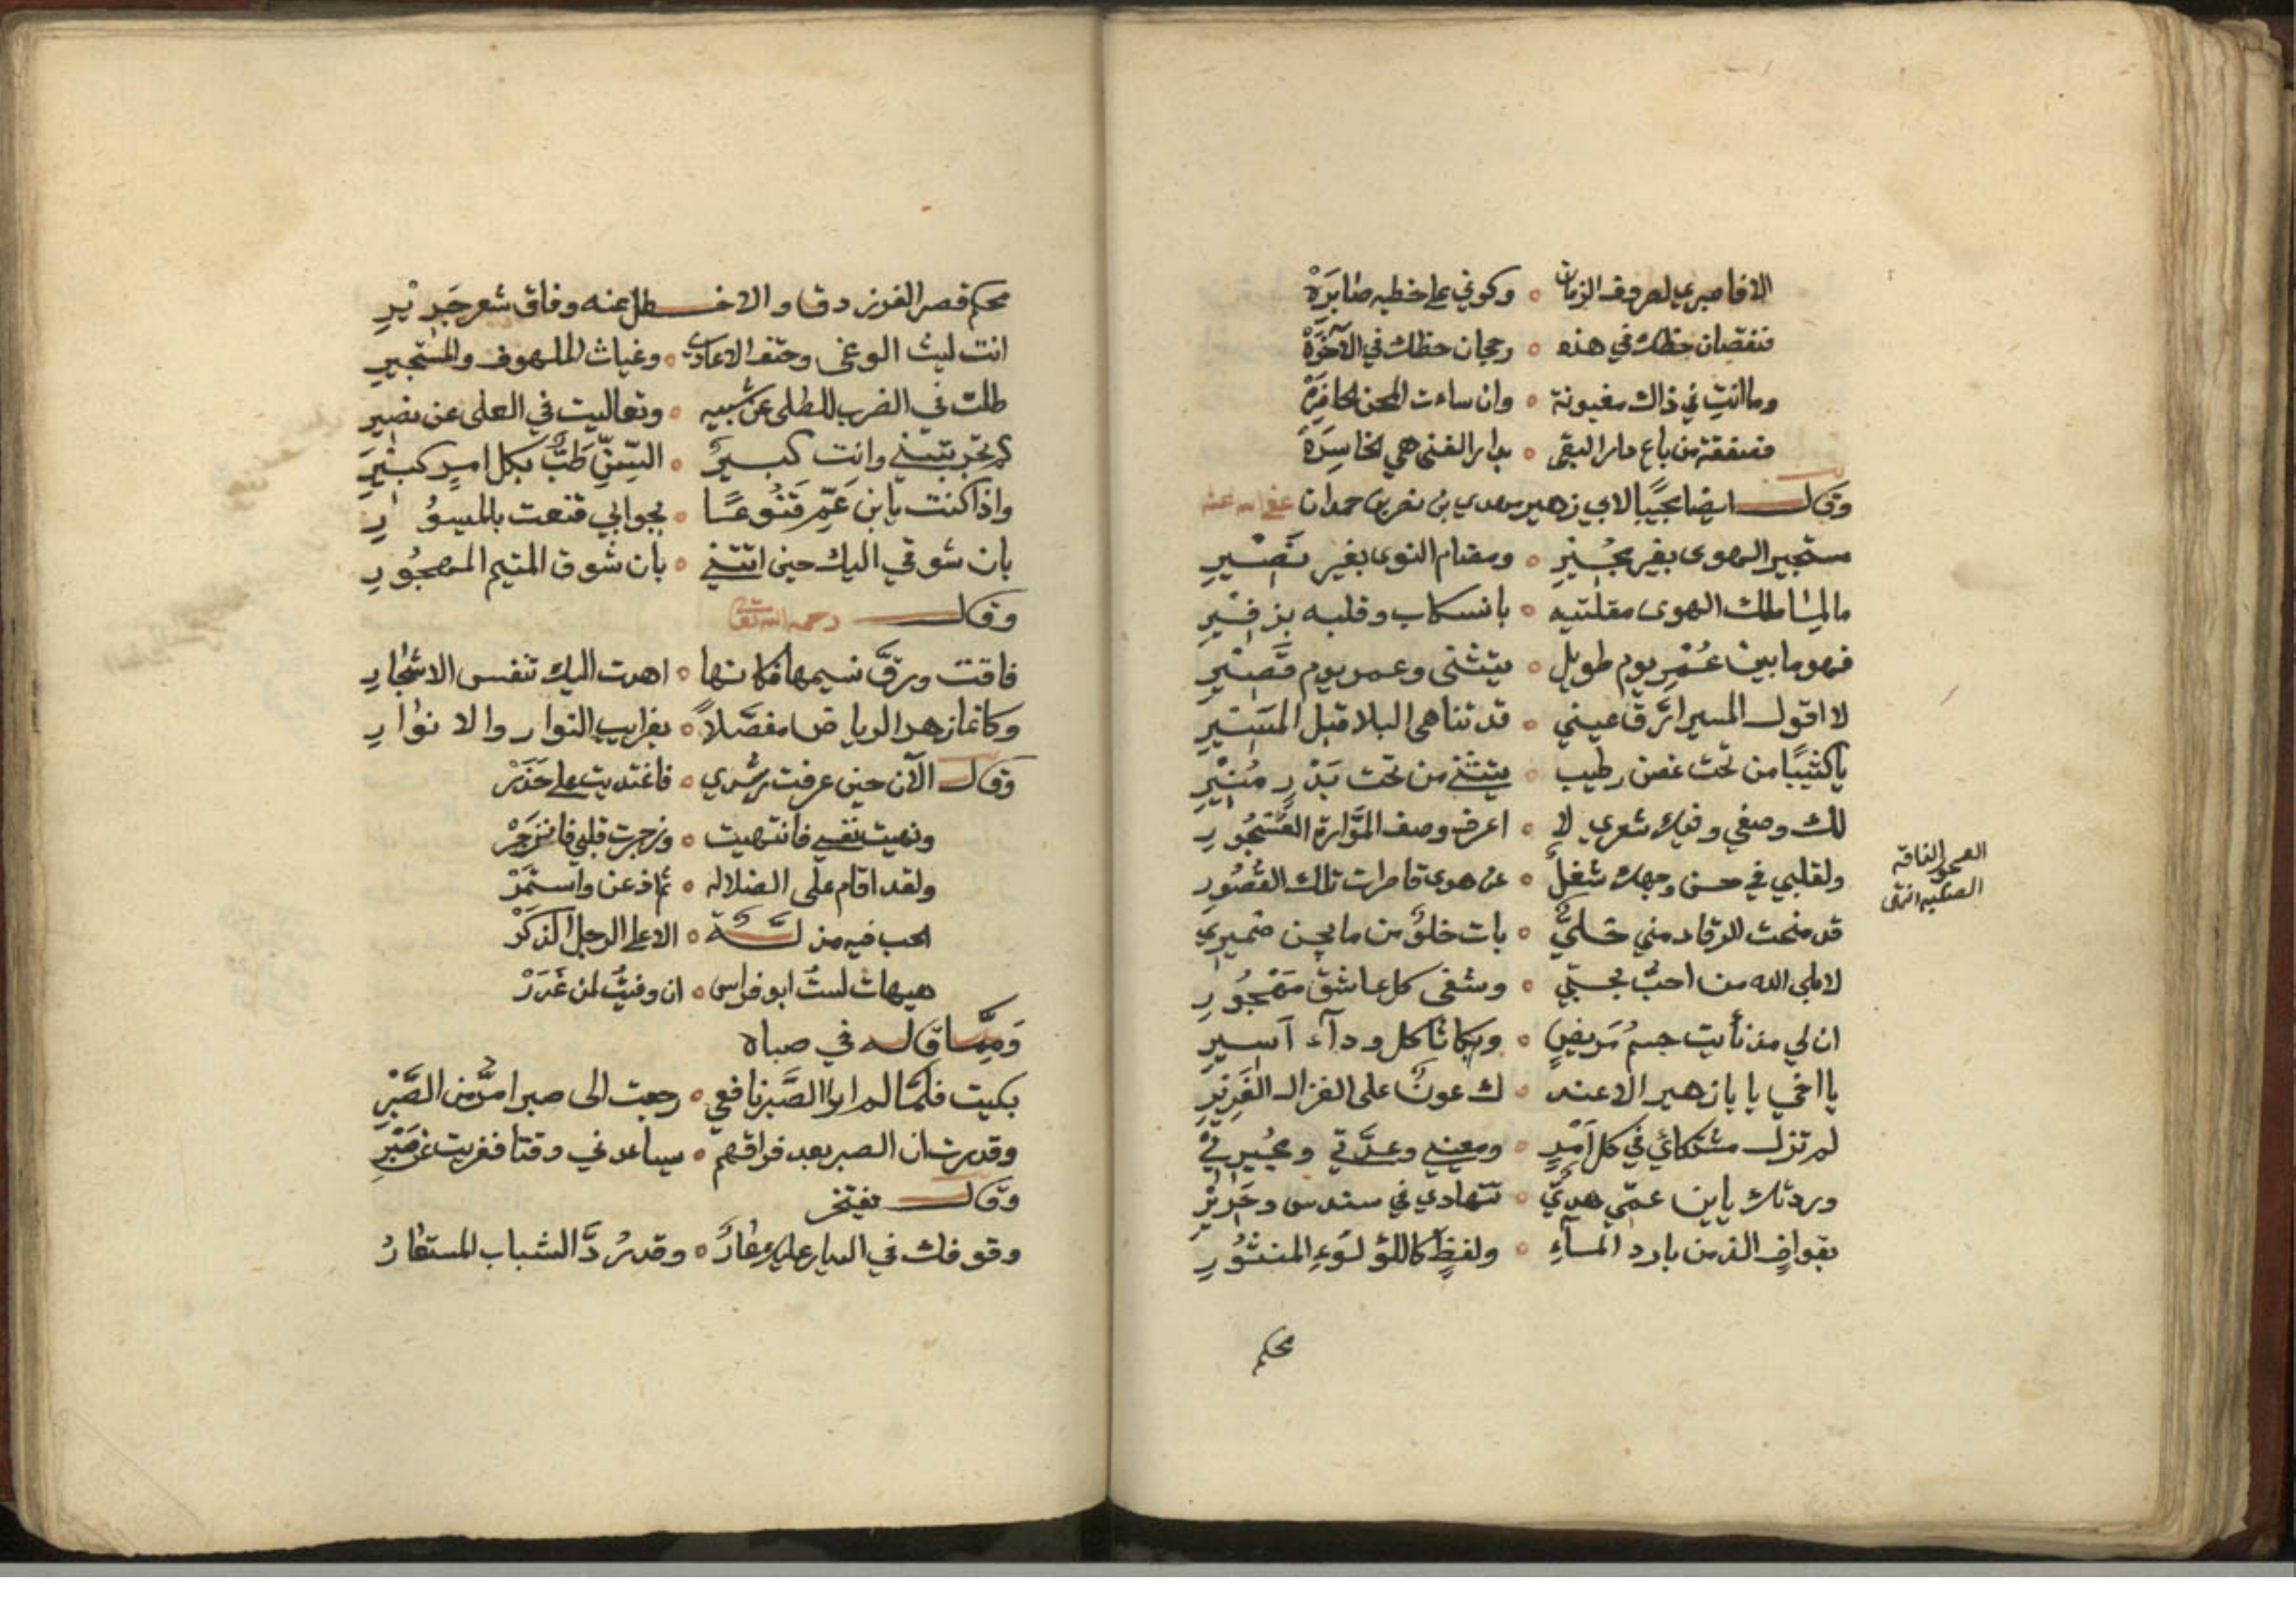 الافاصبري لصروف الزمان ٥ وكوني على خطبه صابرَهْ
فنقصان حظك في هذه ٥ رجحان حظك في الآخرَهْ
وما انتِ في ذاك مغبونة ٥ وان ساءت المحن الحافرَهْ
فصفقة من باع دار البقى ٥ بدار الفنى هي الخاسِرَهْ
وقال ايضا مجيبًا لابي زهير مهدي بن نصر بن حمدان عفى الله عنه
مستجير الهوى بغير مجُيرِ ٥ ومضام النوى بغير نَصيرِ
ما لمن اطلت الهوى مقلتيه ٥ بانسكاب وقلبه بزفيرِ
فهو ما بين عُمْرِ يوم طويل ٥ يتثنى وعمر يوم قَصيرِ
لا اقول المسير ارَّق عيني ٥ قد تناهى البلا قبل المسيرِ
يا كثيبًا من تحت غصن رطيب ٥ يتثنى من تحت بَدْرٍ مُنيرِ
لك وصفي وفيك شعري لا ٥ اعرف وصف الموَّارة العَسْجُورِ
ولقلبي في حسن وجهك شغلٌ ٥ عن هوى قاصرات تلك القُصُورِ
قد منحت الرقاد مني خليَّ ٥ بات خلوٌ من ما يجن ضميري
لا بلى الله من احبُّ بحبّي ٥ وشفى كل عاشق مَهْجُورِ
ان لي مذ نأيت جسمُ مَريضٍ ٥ وبكا ثاكل ودآء اَسيرِ
يا اخي يا با زهير الا عند ٥ ك عونٌ على الغزال الغَريرِ
لم تزل مشتكائي في كل اَمْرٍ ٥ ومعيني وعدَّتي ومجُيرِيْ
وردتك يا بن عمّي هديّ ٥ تتهادي في سندس وحَريْرِ
بقوافٍ الذ من بارد المآءِ ٥ ولفظٍ كاللؤلؤءِ المنثُورِ
محكم
الناقة
محكم قصر الفرزدق والاخطل عنه وفاق شعر جَريْرِ
انت ليث الوغى وحتف الاعادي ٥ وغياث الملهوف والمستجيرِ
طلت في الضرب للطلى عن شبيه ٥ وتعاليت في العلى عن نضير
كم تجربتني وانت كبيرُ ٥ السِّنِّ طَبٌّ بكل امرٍ كبيرِ
واذا كنت يابن عَمّي قَنُوعًا ٥ بجوابي قنعت بالميسُورِ
بان شوقي اليك حين اتتني ٥ بان شوق المتيم المهجُورِ
وقال رحمه الله تعالى
فاقت ورقَّ نسيمها فكانها ٥ اهدت اليك تنفس الاشجارِ
وكانما زهر الرياض مفصّلاً ٥ بغرايب النوار والانوارِ
وقال الآن حين عرفت رشدي ٥ فاغتديت على حَذَرْ
ونهيت نفسي فانتهيت ٥ وزجرت قلبي فانزجَرْ
ولقد اقام على الضلاله ٥ ثم اذعن واستمَرْ
الحب فيه مذلة ٥ الا على الرجل الذكَرْ
هيهات لستُ ابو فراس ٥ ان وفيتُ لمن غَدَرْ
وَممّا قاله في صباه
بكيت فلمّا لم ارا الصَّبر نافعي ٥ رجعت الى صبر امرَّ من الصَّبْرِ
وقدرت ان الصبر بعد فراقهم ٥ سيساعدني وقتا فعزيت عن صَبْري
وقال يفتخر
وقوفك في الديار عليك عارُ ٥ وقد رُدَّ الشباب المستعارُ